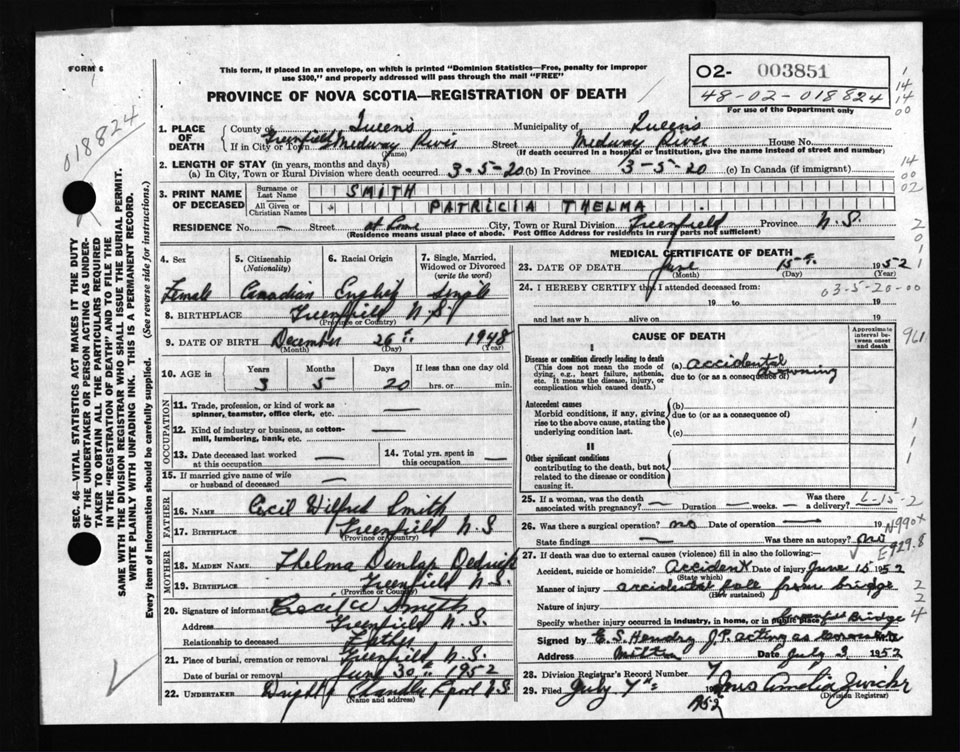 FORM 6
This form, if placed in an envelope, on which is printed "Dominion Statistics—Free, penalty for improper
use $300," and properly addressed will pass through the mail "FREE"
02- 003851
48-02-018824
For use of the Department only
PROVINCE OF NOVA SCOTIA—REGISTRATION OF DEATH
018824
SEC. 46—VITAL STATISTICS ACT MAKES IT THE DUTY
OF THE UNDERTAKER OR PERSON ACTING AS UNDER-
TAKER TO OBTAIN ALL THE PARTICULARS REQUIRED
IN THE "REGISTRATION OF DEATH" AND TO FILE THE
SAME WITH THE DIVISION REGISTRAR WHO SHALL ISSUE THE BURIAL PERMIT.
WRITE PLAINLY WITH UNFADING INK. THIS IS A PERMANENT RECORD.
Every item of information should be carefully supplied. (See reverse side for instructions.)
1. PLACE OF DEATH
County of Queens Municipality of Queens
If in City or Town Greenfield Medway River Street Medway River House No.
(Name) (If death occurred in a hospital or institution, give the name instead of street and number)
2. LENGTH OF STAY (in years, months and days)
(a) In City, Town or Rural Division where death occurred 3-5-20 (b) In Province 3-5-20 (c) In Canada (if immigrant)
3. PRINT NAME OF DECEASED
Surname or Last Name SMITH
All Given or Christian Names PATRICIA THELMA
RESIDENCE No. — Street at home City, Town or Rural Division Greenfield Province N.S.
(Residence means usual place of abode. Post Office Address for residents in rural parts not sufficient)
4. Sex Female
5. Citizenship (Nationality) Canadian
6. Racial Origin English
7. Single, Married, Widowed or Divorced (write the word) Single
8. BIRTHPLACE Greenfield N.S.
(Province or Country)
9. DATE OF BIRTH December 26th 1948
(Month) (Day) (Year)
10. AGE in Years 3 Months 5 Days 20 If less than one day old hrs. or min.
OCCUPATION
11. Trade, profession, or kind of work as
spinner, teamster, office clerk, etc. —
12. Kind of industry or business, as cotton-
mill, lumbering, bank, etc. —
13. Date deceased last worked
at this occupation —
14. Total yrs. spent in
this occupation —
15. If married give name of wife
or husband of deceased —
FATHER
16. Name Cecil Wilfred Smith
17. Birthplace Greenfield N.S
(Province or Country)
MOTHER
18. Maiden Name Thelma Dunlap
19. Birthplace Greenfield N.S.
(Province or Country)
20. Signature of informant Cecil W Smith
Address Greenfield N.S.
Relationship to deceased Father
21. Place of burial, cremation or removal Greenfield N.S.
Date of burial or removal June 30th 1952
22. Undertaker Wright Chandler N.S
(Name and address)
MEDICAL CERTIFICATE OF DEATH
23. DATE OF DEATH June 15th 1952
(Month) (Day) (Year)
24. I HEREBY CERTIFY that I attended deceased from:
03-5-20-00
19 to 19
and last saw h alive on 19
CAUSE OF DEATH
Approximate interval between onset and death
I
Disease or condition directly leading to death
(This does not mean the mode of
dying, e.g., heart failure, asthenia,
etc. It means the disease, injury, or
complication which caused death.)
(a) accidental drowning
due to (or as a consequence of)
Antecedent causes
Morbid conditions, if any, giving
rise to the above cause, stating the
underlying condition last.
(b)
due to (or as a consequence of)
(c)
II
Other significant conditions
contributing to the death, but not
related to the disease or condition
causing it.
25. If a woman, was the death
associated with pregnancy? — Duration — weeks. — Was there a delivery?
6-15-2
26. Was there a surgical operation? no Date of operation — 19
State findings — Was there an autopsy? no
N990X
E929.8
27. If death was due to external causes (violence) fill in also the following:—
Accident, suicide or homicide? Accident Date of injury June 15 1952
(State which)
Manner of injury accidental fall from bridge
(How sustained)
Nature of injury
Specify whether injury occurred in industry, in home, or in public place Greenfield Bridge
Signed by E.S. Hendry J.P. acting as Coroner
Address Milton Date July 3, 1952
28. Division Registrar's Record Number 7
29. Filed July 7th 1952 Mrs Amelia Zwicker
(Division Registrar)
1
14
14
00
14
00
02
2
0
1
1
961
1
1
1
2
2
4